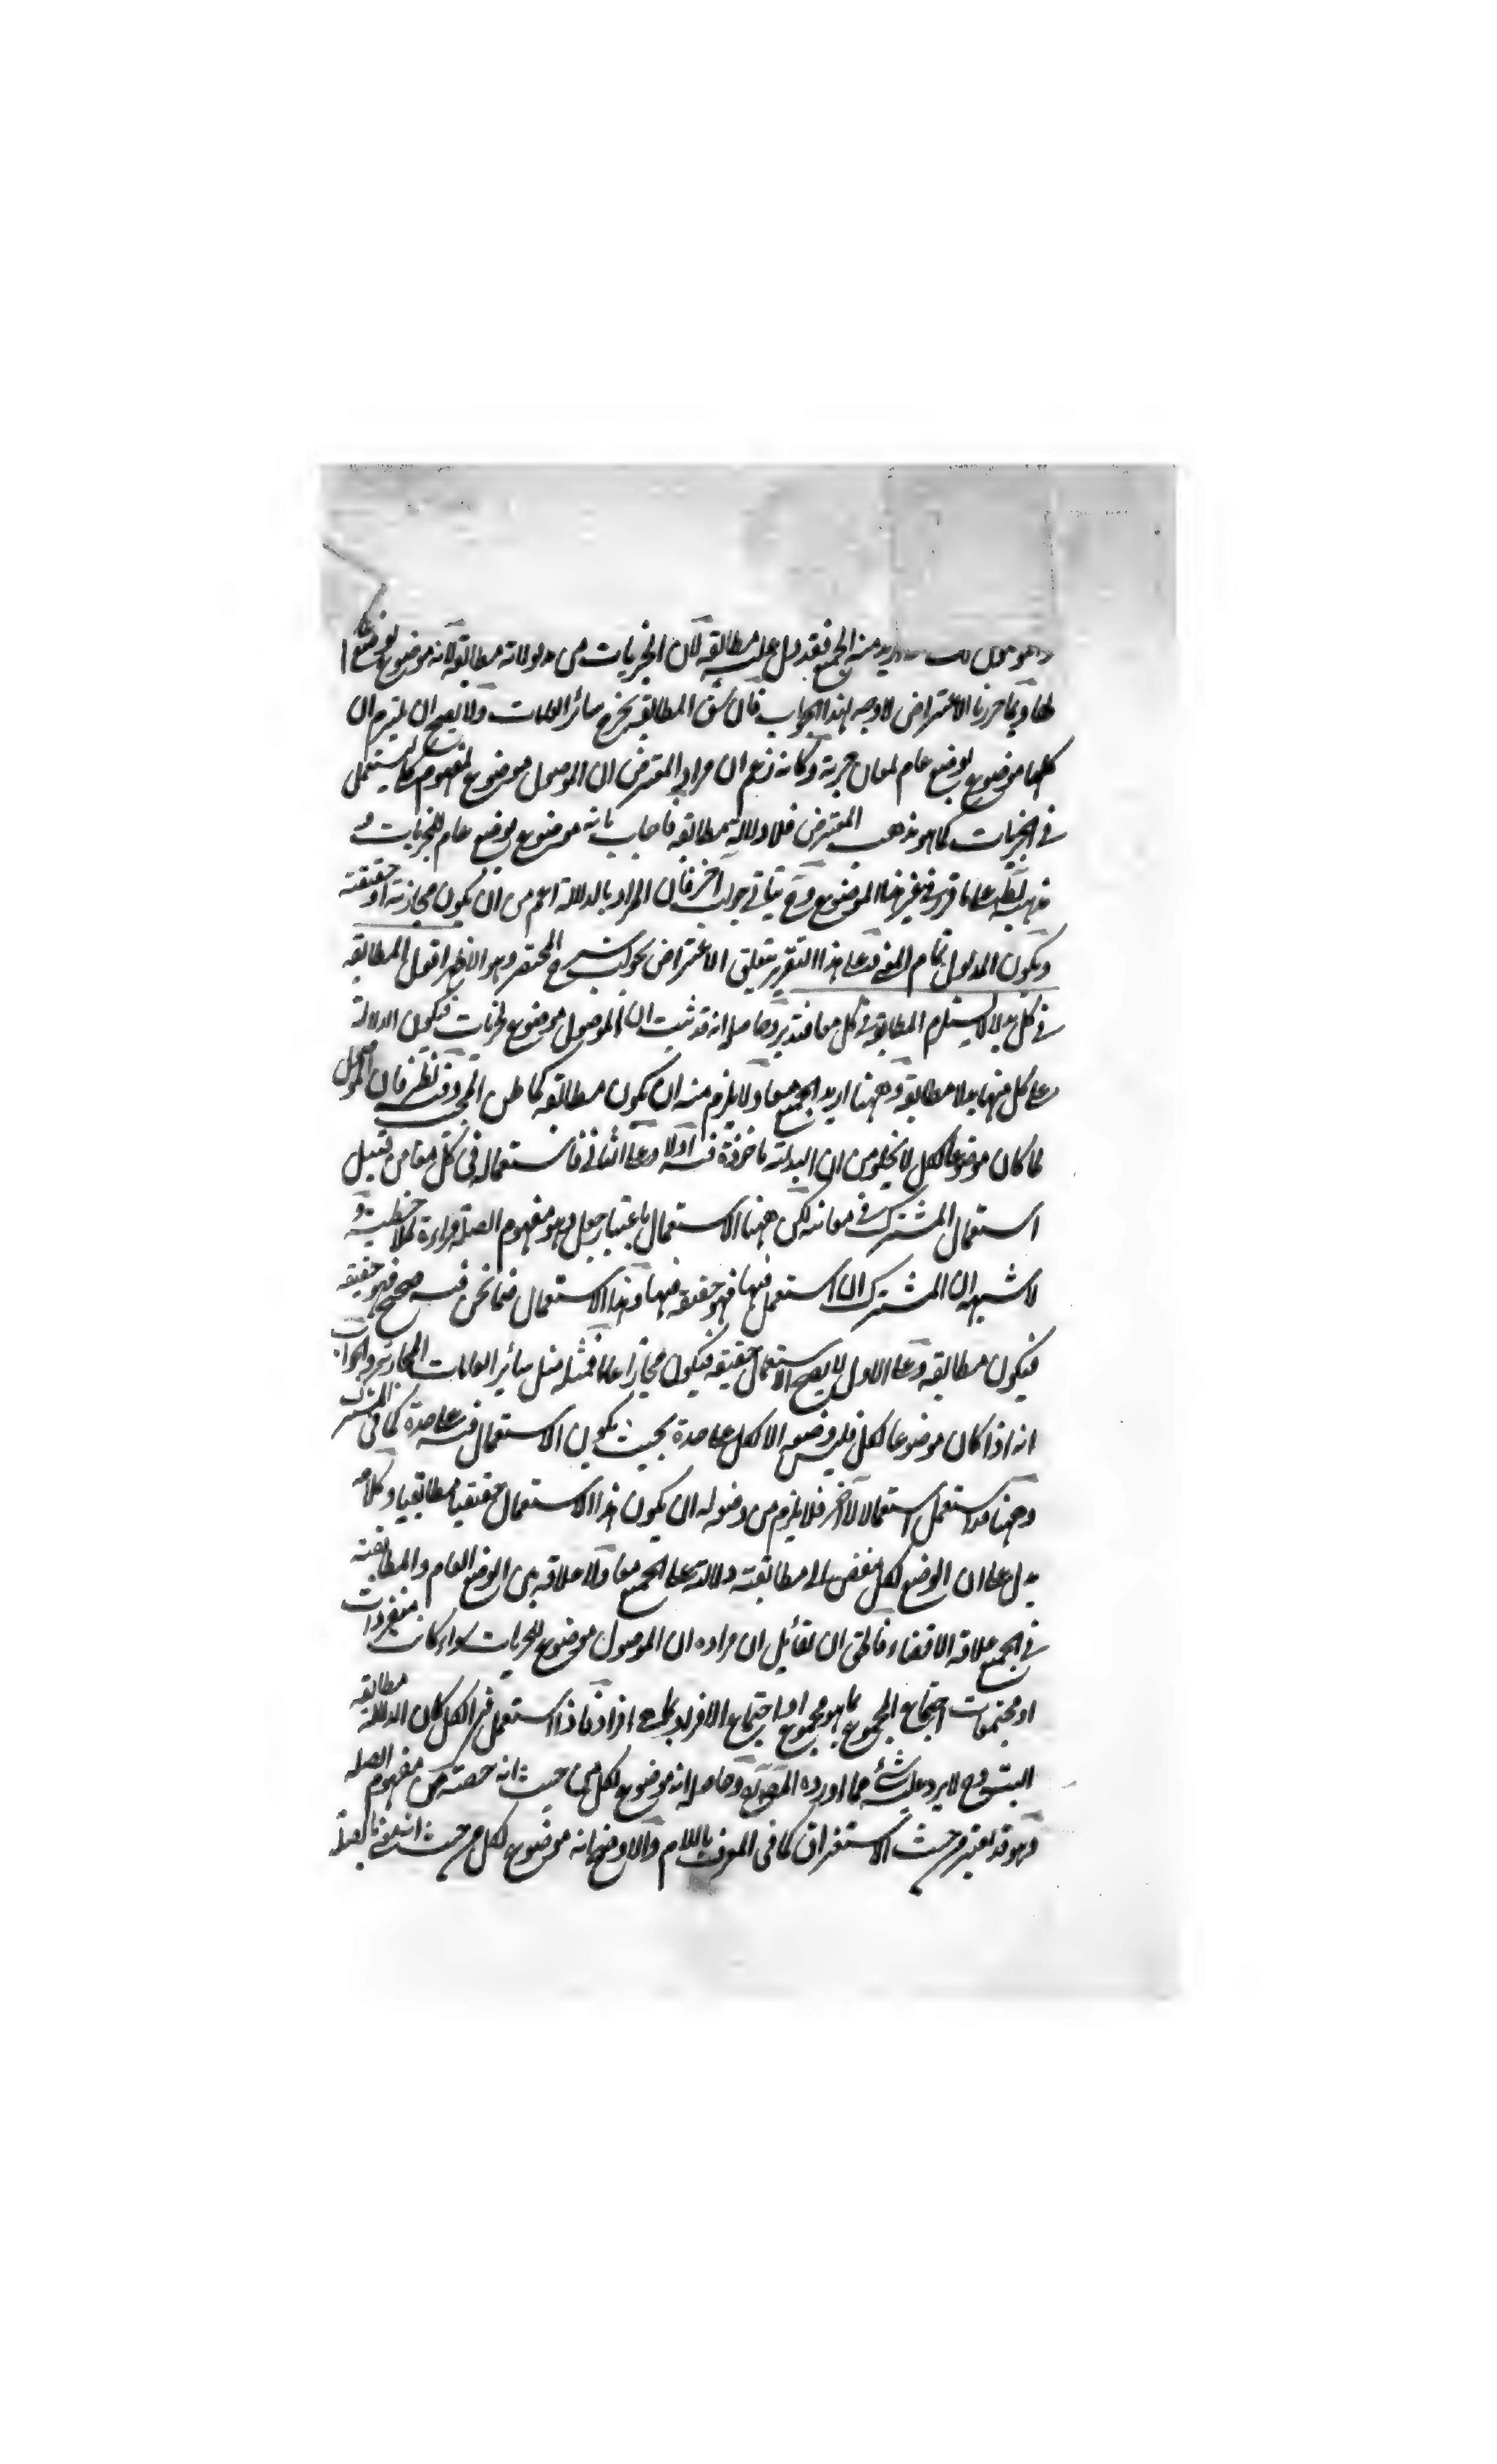 منه الجميع فقد دل عليه مطابقة لان الجزئيات من مدلولاته مطابقة لانه موضوع بوضع عام
لها وبما حررنا الاعتراض لا وجه لهذا الجواب فان شق المطابقة يخرج سائر العمات ولا يصح ان يلتزم ان
كلها موضوع بوضع عام لمعان جزئية وكانه زعم ان مراد المعترض ان الموصول موضوع لمفهوم كلي يستعمل
في الجزئيات كما هو مذهب المعترض فلا دلالة مطابقة فاجاب بانه موضوع بوضع عام للجزئيات
الموضوع وح يتأتى جواب اخر فان المراد بالدلالة اعم من ان يكون مجازية او حقيقة
ويكون المدلول تمام المعنى وعلى هذا التقرير يتعلق الاعتراض بجواب شرح المختصر وهو الاظهر اقول المطابقة
في كل بدلا لا يستلزم المطابقة في كل معا فتدبر وحاصله انه قد ثبت ان الموصول موضوع لجزئيات فيكون الدلالة
على كل منها بدلا مطابقة وههنا اريد الجميع معا ولا يلزم منه ان يكون مطابقة كما ظن المجيب وفيه نظر فان الموصول
لما كان موضوعا لكل لا يخلو من ان البدلية ماخوذة فيه اولا وعلى الثاني فاستعماله في كل معا من قبيل
استعمال المشترك في معانيه لكن ههنا الاستعمال باعتبار جعل وهو مفهوم الصلة وراءة لملاحظته و
لا شبهة ان المشترك ان استعمل فيها فهو حقيقة فيها وهذا الاستعمال فيما نحن فيه صحيح فهو حقيقة
فيكون مطابقة وعلى الاول لا يصح الاستعمال حقيقة فيكون مجازا عاما فمثله مثل سائر العامات المجازية والجواب
انه اذا كان موضوعا لكل فليس وضعه الا لكل على حدة بحيث يكون الاستعمال فيه على حدة كما في المشترك
وههنا قد استعمل استعمالا لآخر فلا يلزم من وضع له ان يكون هذا الاستعمال حقيقيا مطابقيا وكلامه
يدل على ان الوضع لكل مفض الى مطابقته دلالته على الجميع معا ولا علاقة بين الوضع العام والمطابقة
في الجميع علاقة الاقتضاء فالحق ان لقائل ان مراده ان الموصول موضوع للجزئيات سواء كانت منفردات
او مجتمعات اجتماع المجموع بما هو مجموع او اجتماع الافراد بما هي افراد فاذا استعمل في الكل كان الدلالة مطابقة
البتة وح لا يرد عليه شئ مما اورده المص وحاصله انه موضوع لكل من حيث انه حصته من مفهوم الصلة
وهو قد يعتبر من حيث الاستغراق كما في المعرف باللام والاوضح انه موضوع لكل من حيث انه